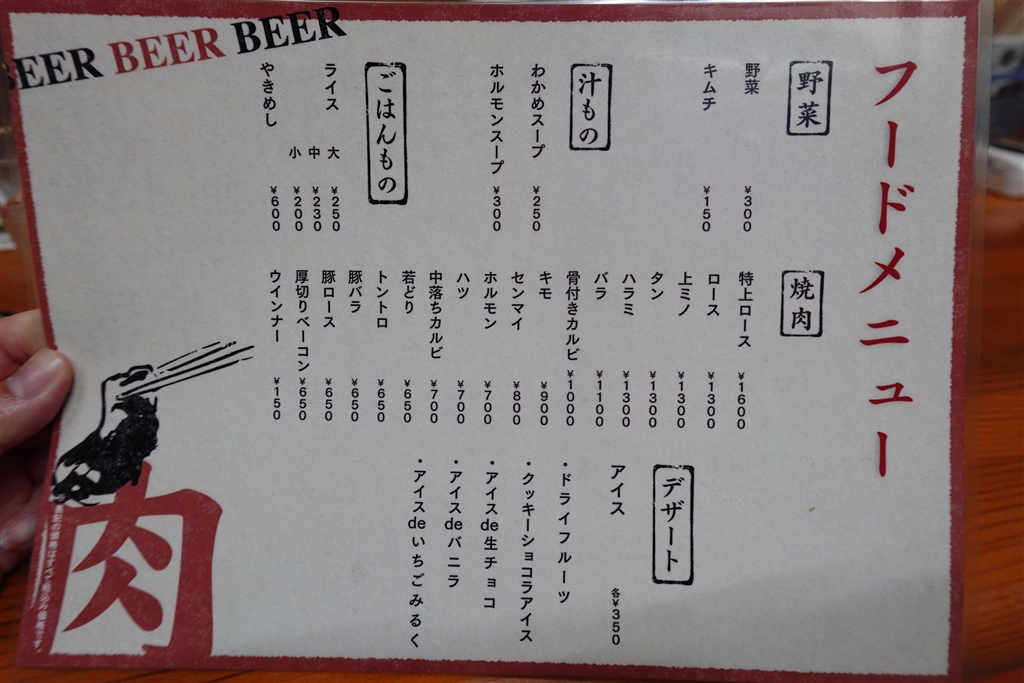 BEER BEER BEER
フードメニュー
野菜
野菜 ¥300
キムチ ¥150
汁もの
わかめスープ ¥250
ホルモンスープ ¥300
ごはんもの
ライス 大 ¥250
中 ¥230
小 ¥200
やきめし ¥600
焼肉
特上ロース ¥1600
ロース ¥1300
上ミノ ¥1300
タン ¥1300
ハラミ ¥1300
バラ ¥1100
骨付きカルビ ¥1000
キモ ¥900
センマイ ¥800
ホルモン ¥700
ハツ ¥700
中落ちカルビ ¥700
若どり ¥650
トントロ ¥650
豚バラ ¥650
豚ロース ¥650
厚切りベーコン ¥650
ウインナー ¥150
デザート
アイス 各¥350
・ドライフルーツ
・クッキーショコラアイス
・アイスde生チョコ
・アイスdeバニラ
・アイスdeいちごみるく
肉
表記の価格はすべて税込み価格です。